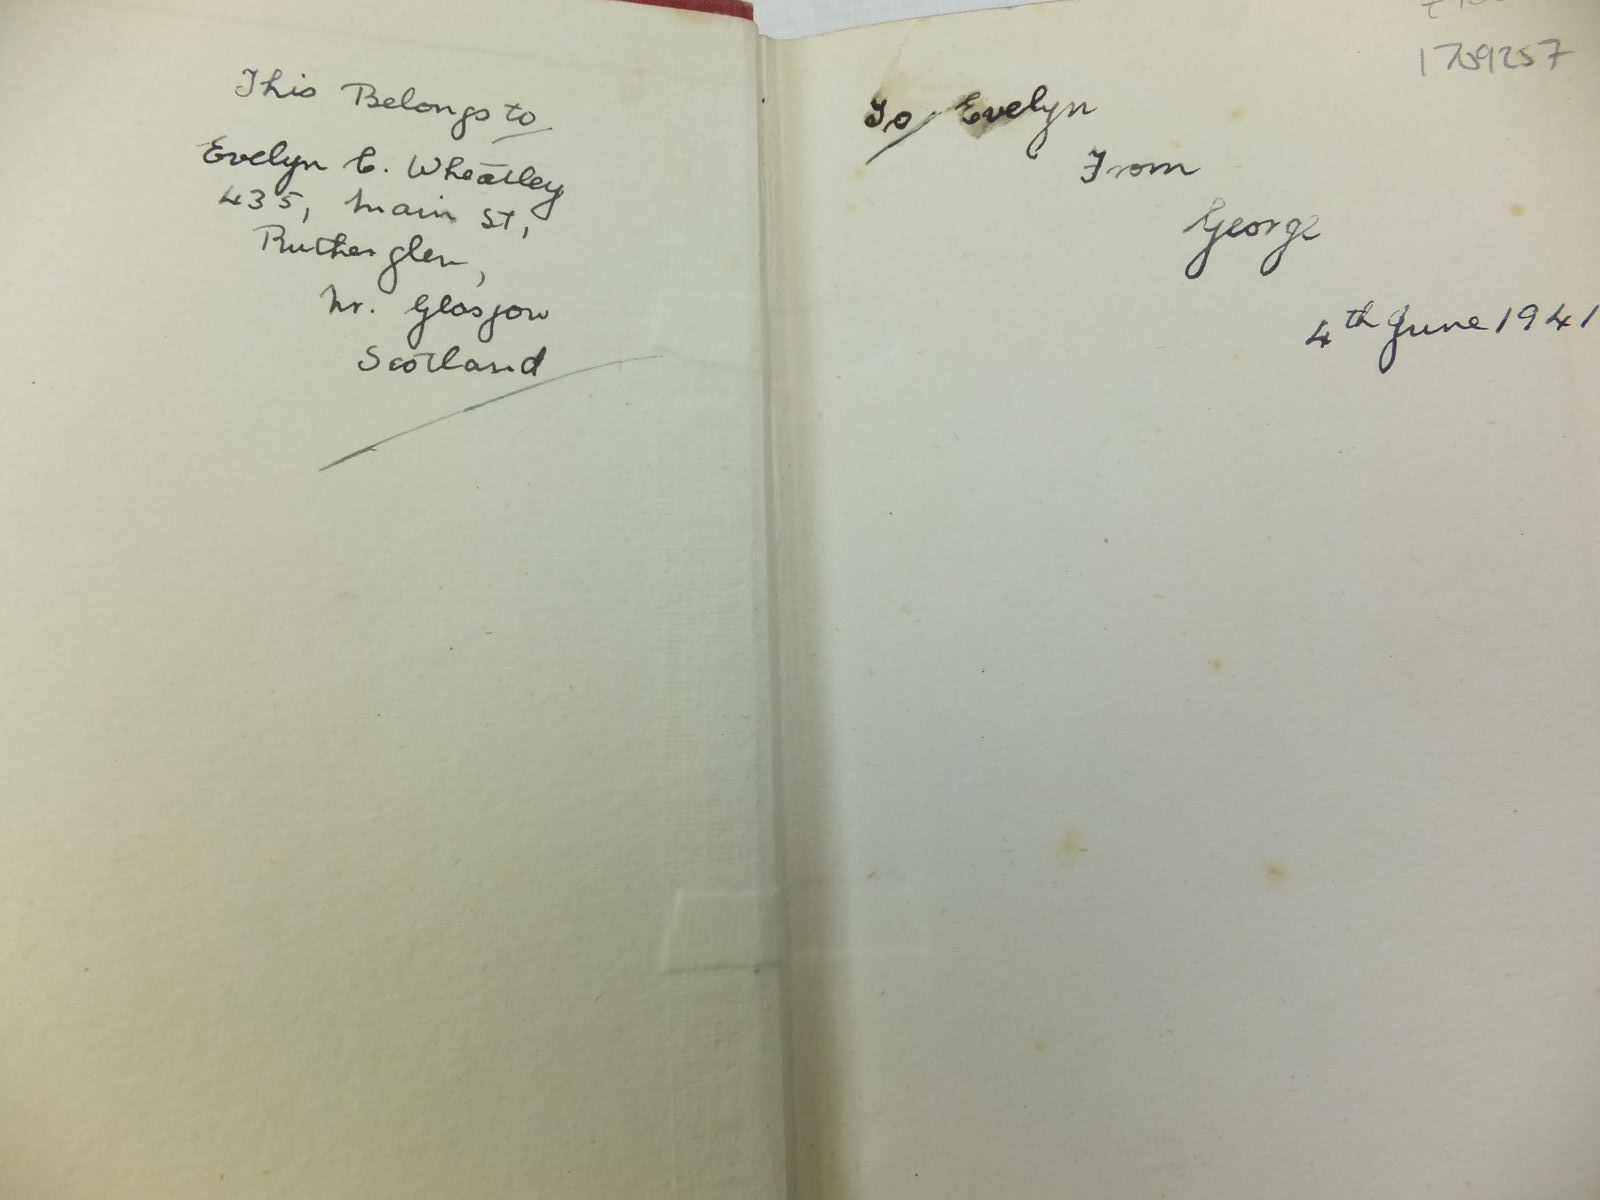 This Belongs to
Evelyn C. Wheatley
435, Main St,
Rutherglen,
Nr. Glasgow
Scotland
1709257
To Evelyn
From
George
4th June 1941